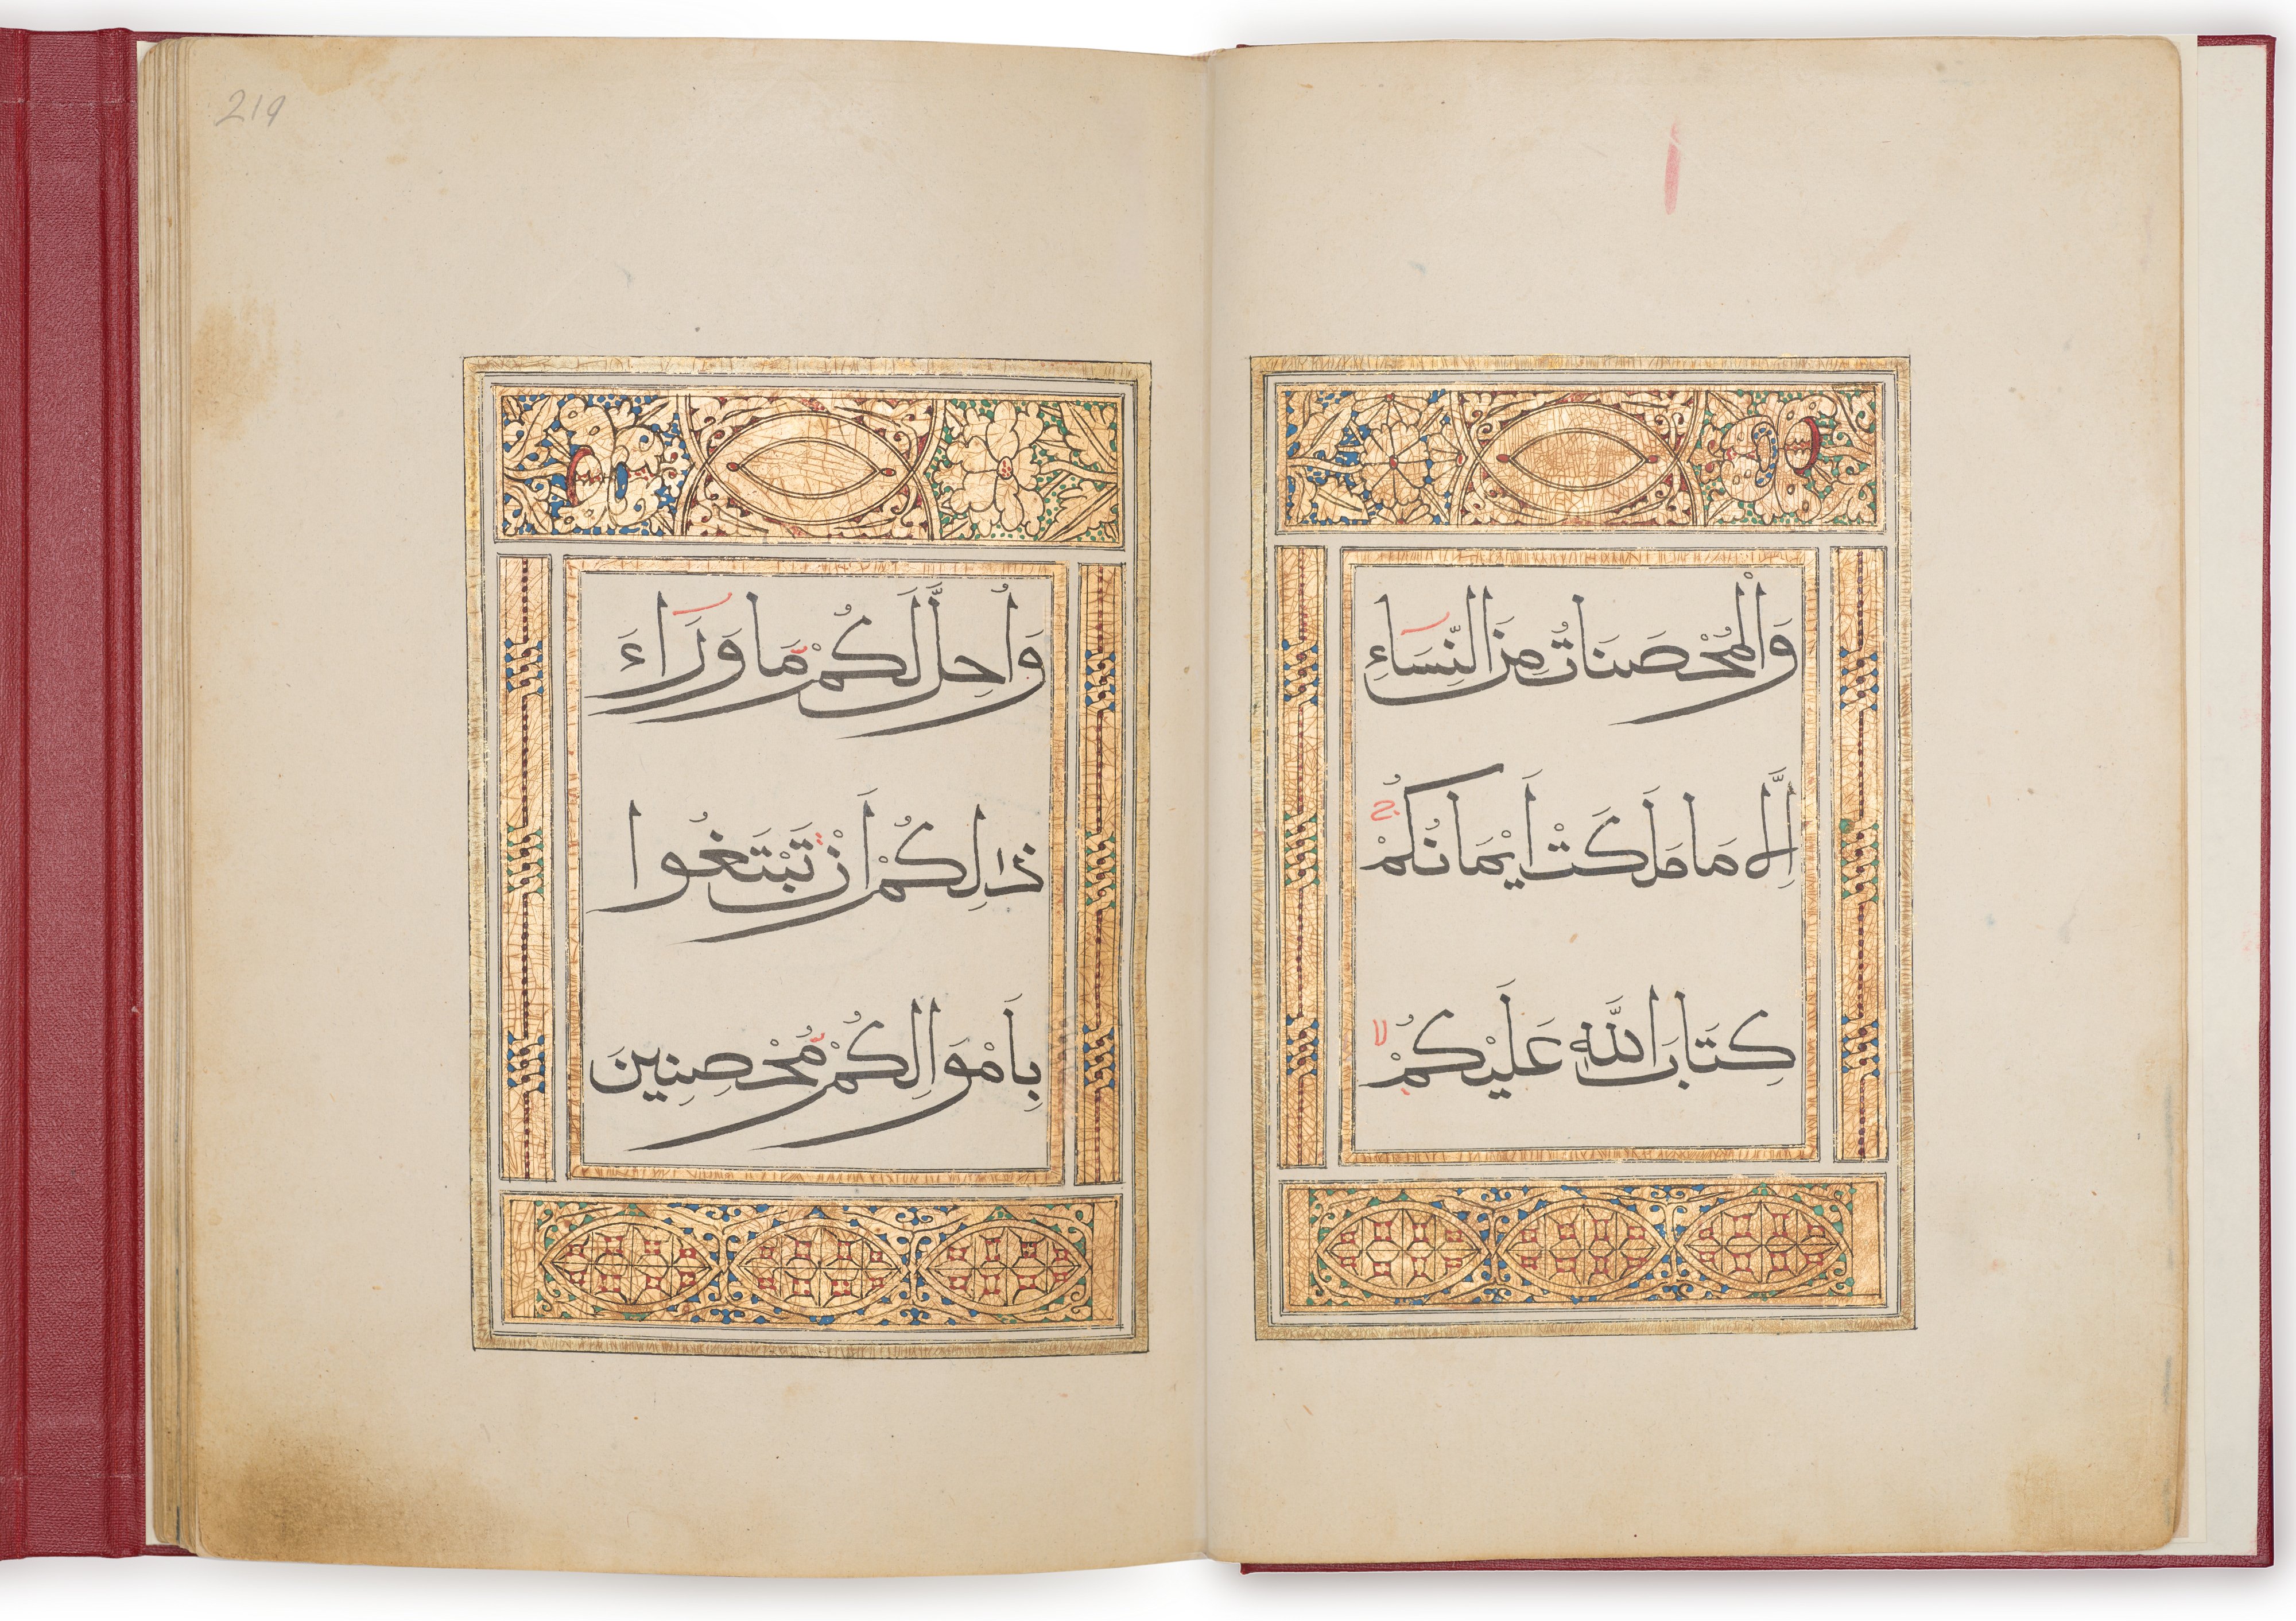 وَالْمُحْصَنَاتُ مِنَ النِّسَاءِ
اِلَّا مَا مَلَكَتْ اَيْمَانُكُمْ ج
كِتَابَ اللَّهِ عَلَيْكُمْ لا
219
وَاُحِلَّ لَكُمْ مَا وَرَاءَ
ذٰلِكُمْ اَنْ تَبْتَغُوا
بِاَمْوَالِكُمْ مُحْصِنِينَ